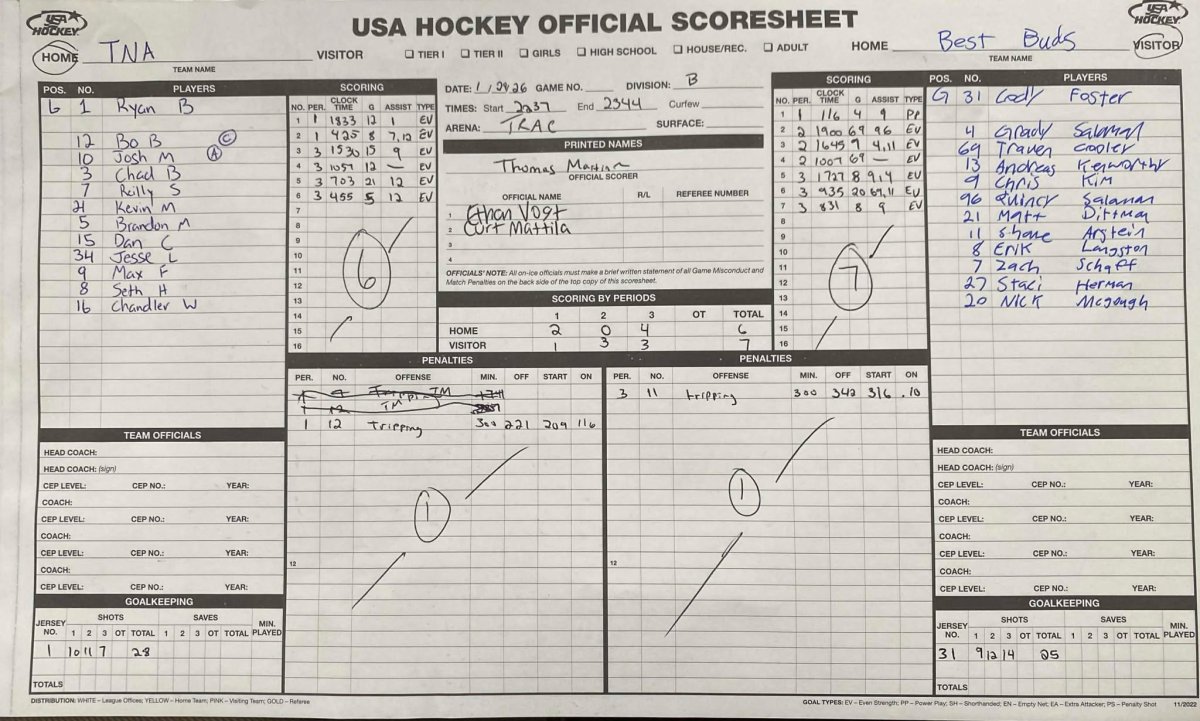 USA HOCKEY
USA HOCKEY OFFICIAL SCORESHEET
USA HOCKEY
HOME TNA VISITOR
TEAM NAME
☐ TIER I ☐ TIER II ☐ GIRLS ☐ HIGH SCHOOL ☐ HOUSE/REC. ☐ ADULT
HOME Best Buds VISITOR
TEAM NAME
POS. NO. PLAYERS
G 1 Ryan B
12 Bo B C
10 Josh M A
3 Chad B
7 Reilly S
21 Kevin M
5 Brandon M
15 Dan C
34 Jesse L
9 Max F
8 Seth H
16 Chandler W
SCORING
NO. PER. CLOCK TIME G ASSIST TYPE
1 1 1833 12 1 EV
2 1 425 8 7,12 EV
3 3 1530 15 9 EV
4 3 1057 12 — EV
5 3 703 21 12 EV
6 3 455 5 12 EV
7
8
9
10
11
12
13
14
15
16
6
DATE: GAME NO. DIVISION: B
TIMES: Start 2237 End 2344 Curfew
ARENA: TRAC SURFACE:
PRINTED NAMES
Thomas Martin
OFFICIAL SCORER
OFFICIAL NAME R/L REFEREE NUMBER
1 Ethan Vogt
2 Curt Mattila
3
4
OFFICIALS' NOTE: All on-ice officials must make a brief written statement of all Game Misconduct and
Match Penalties on the back side of the top copy of this scoresheet.
SCORING BY PERIODS
1 2 3 OT TOTAL
HOME 2 0 4 6
VISITOR 1 3 3 7
SCORING
NO. PER. CLOCK TIME G ASSIST TYPE
1 1 116 4 9 PP
2 2 1900 69 96 EV
3 2 1645 9 4,11 EV
4 2 1007 69 — EV
5 3 1727 8 9,4 EV
6 3 935 20 69,11 EV
7 3 831 8 9 EV
8
9
10
11
12
13
14
15
16
7
POS. NO. PLAYERS
G 31 Cody Foster
4 Grady Salaman
69 Traven Cooler
13 Andreas Kenworthy
9 Chris Kim
96 Quincy Salaman
21 Matt Dittman
11 Shane Arstein
8 Erik Langston
7 Zach Schaff
27 Staci Herman
20 Nick Mcgough
PENALTIES
PER. NO. OFFENSE MIN. OFF START ON
1 12 tripping 300 221 209 116
12
1
PENALTIES
PER. NO. OFFENSE MIN. OFF START ON
3 11 tripping 300 342 316 .10
12
1
TEAM OFFICIALS
HEAD COACH:
HEAD COACH: (sign)
CEP LEVEL: CEP NO.: YEAR:
COACH:
CEP LEVEL: CEP NO.: YEAR:
COACH:
CEP LEVEL: CEP NO.: YEAR:
COACH:
CEP LEVEL: CEP NO.: YEAR:
GOALKEEPING
JERSEY NO. SHOTS SAVES MIN. PLAYED
1 2 3 OT TOTAL 1 2 3 OT TOTAL
1 10 11 7 28
TOTALS
TEAM OFFICIALS
HEAD COACH:
HEAD COACH: (sign)
CEP LEVEL: CEP NO.: YEAR:
COACH:
CEP LEVEL: CEP NO.: YEAR:
COACH:
CEP LEVEL: CEP NO.: YEAR:
COACH:
CEP LEVEL: CEP NO.: YEAR:
GOALKEEPING
JERSEY NO. SHOTS SAVES MIN. PLAYED
1 2 3 OT TOTAL 1 2 3 OT TOTAL
31 9 12 14 25
TOTALS
DISTRIBUTION: WHITE – League Offices; YELLOW – Home Team; PINK – Visiting Team; GOLD – Referee
GOAL TYPES: EV – Even Strength; PP – Power Play; SH – Shorthanded; EN – Empty Net; EA – Extra Attacker; PS – Penalty Shot 11/2022